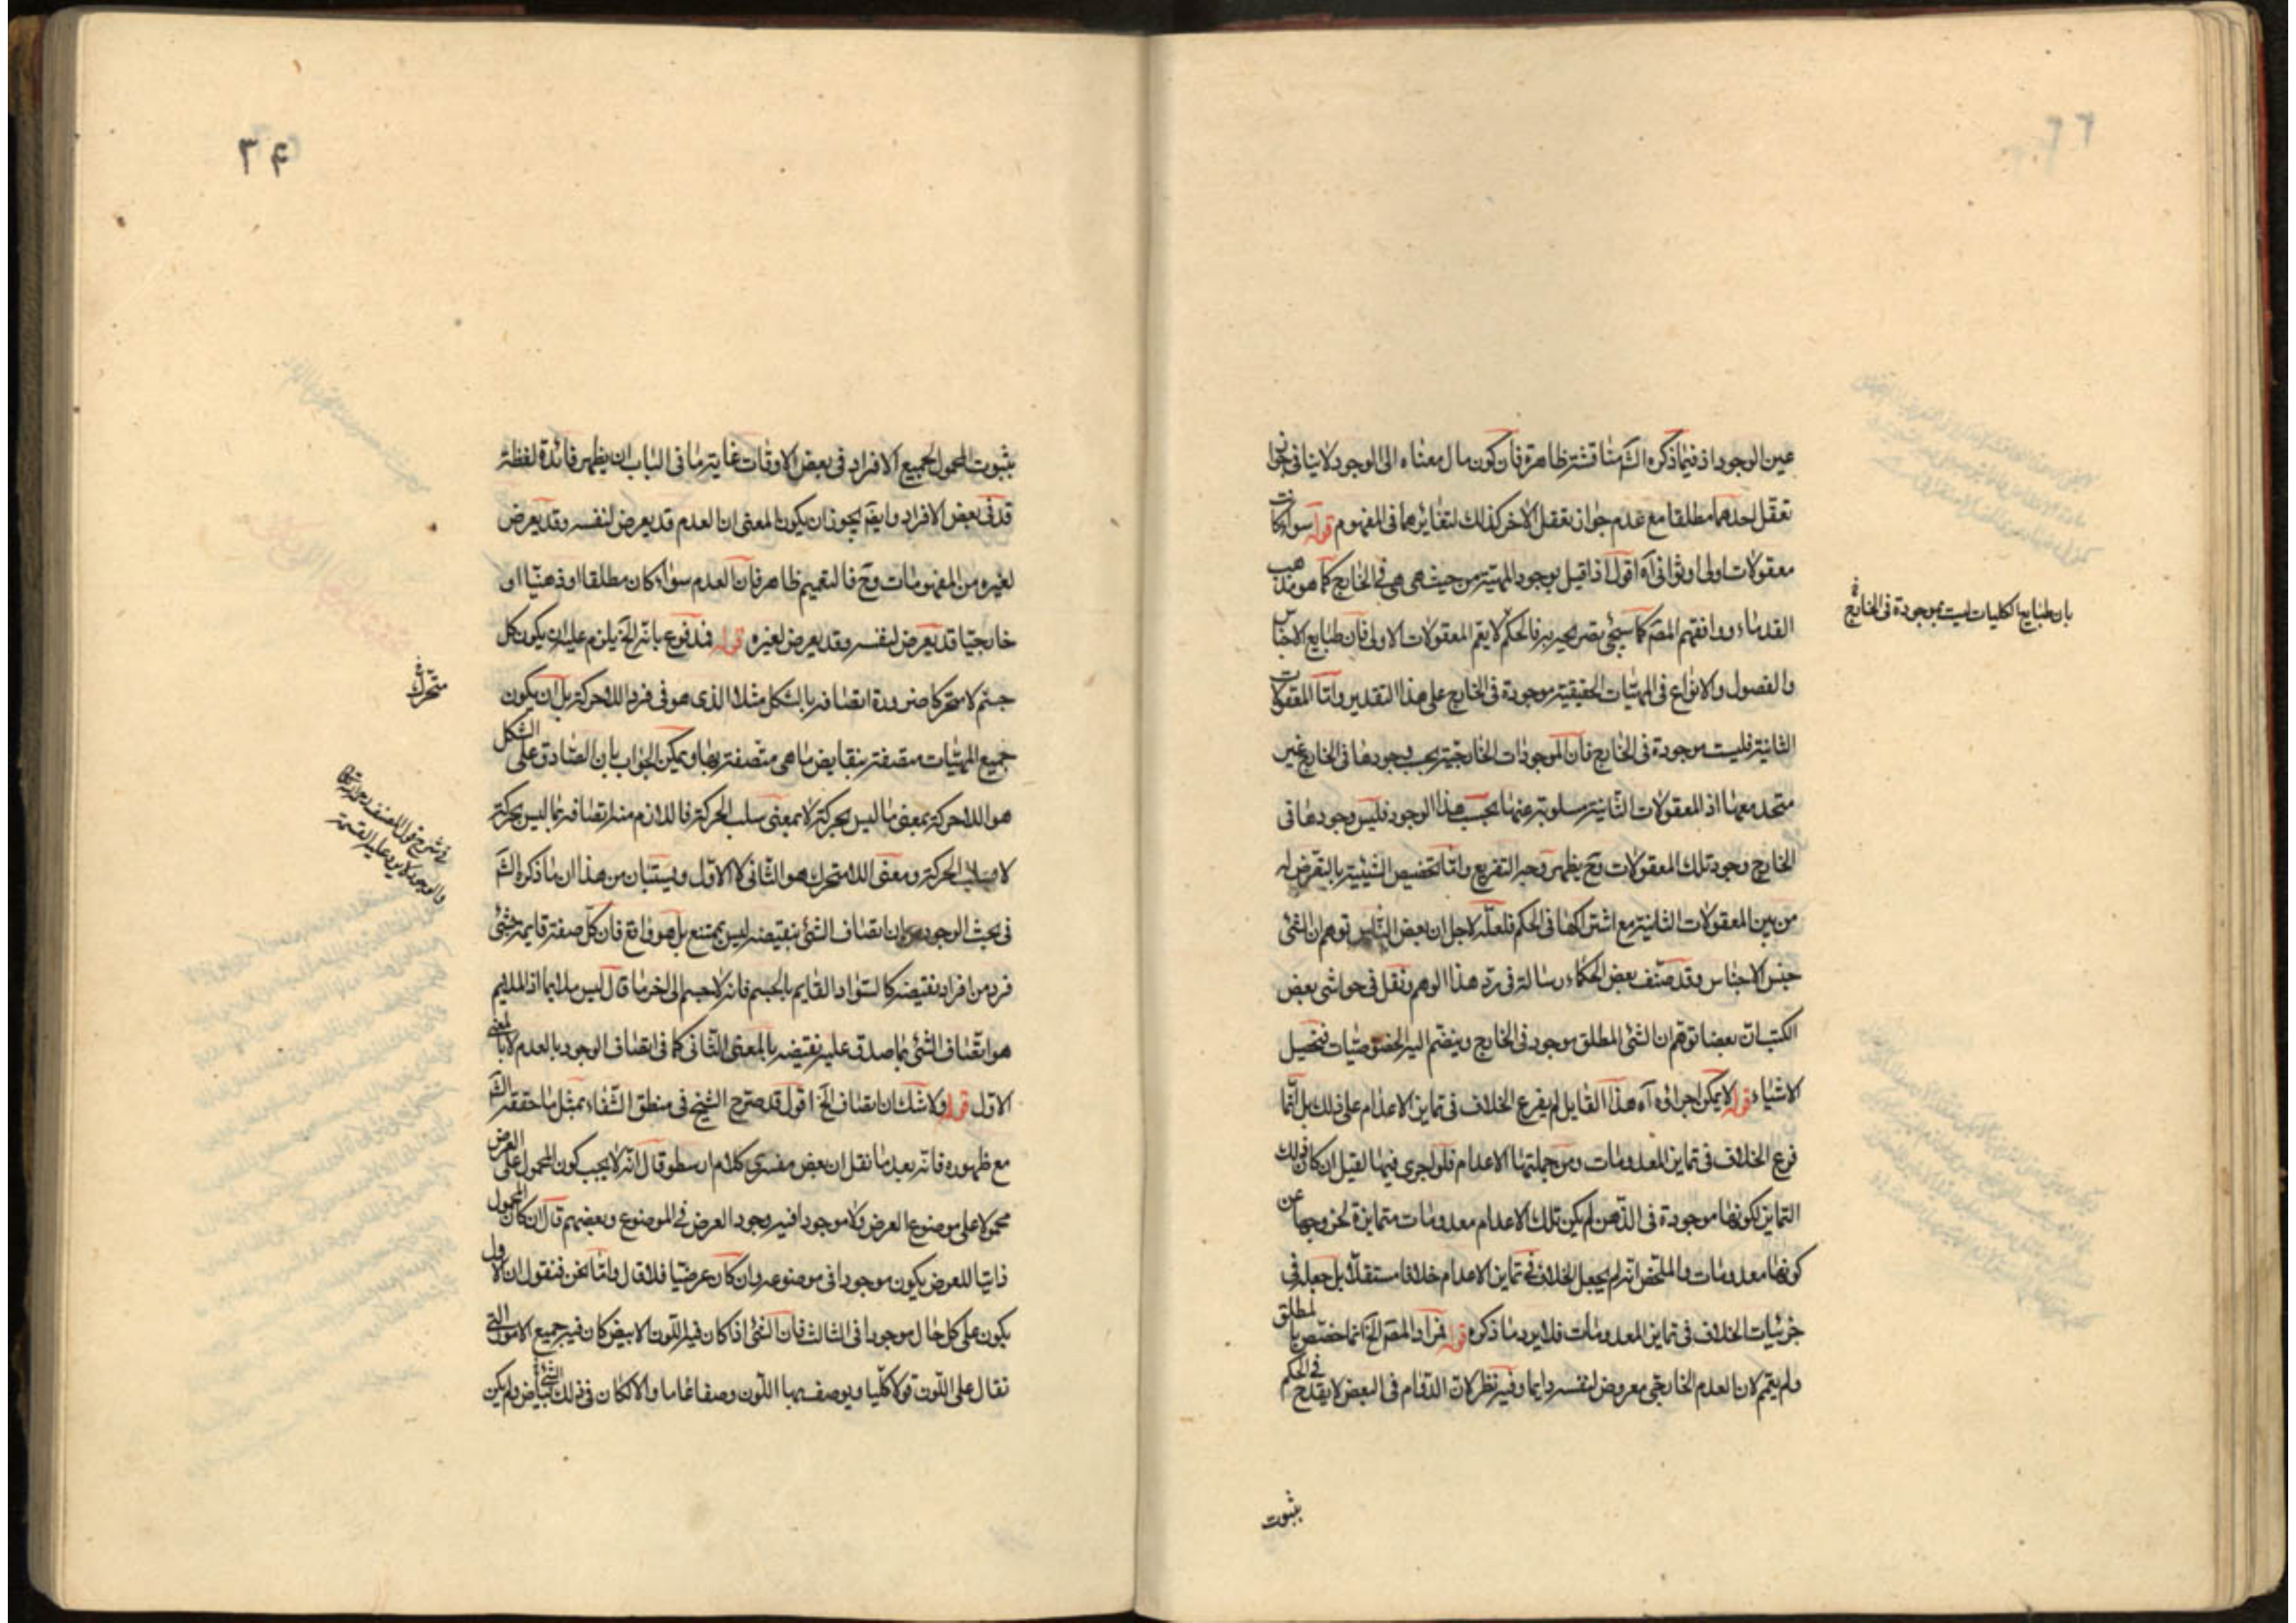 عين الوجود اذ فيما ذكره الشّ مناقشة ظاهرة فان كون مال معناه الى الوجود لا ينافى جواز
تعقل احدهما مطلقا مع عدم جواز تعقل الاخر كذلك لتغايرهما فى المفهوم قوله سواء كانت
معقولات اولى او ثوانى آه اقول اذا قيل بوجود المهية من حيث هى هى فى الخارج كما هو مذهب
القدماء ووافقهم المصّ كما سيجئ تصريحه به فالحكم لا يعم المعقولات الاولى فان طبايع الاجناس
والفصول والانواع فى المهيات الحقيقية موجودة فى الخارج على هذا التقدير وامّا المعقولات
الثانية فليست موجودة فى الخارج فان الموجودات الخارجية يجب وجودها فى الخارج غير
متحد معها اذ المعقولات الثانية مسلوبة عنها بحسب هذا الوجود فليس وجودها فى
الخارج وجود تلك المعقولات وح يظهر وجه التفريع وامّا تخصيص الشيئية بالتعرض له
من بين المعقولات الثانية مع اشتراكها فى الحكم فلعلّه لاجل ان بعض الناس توهم ان الشئ
جنس الاجناس وقد صنّف بعض الحكماء رسالة فى ردّ هذا الوهم ونقل فى حواشى بعض
الكتب انّ بعضا توهم ان الشئ المطلق موجود فى الخارج وينضم اليه الخصوصيّات فتحصيل
الاشياء قوله لا يمكن اجرائه آه هذا القايل لم يفرع الخلاف فى تمايز الاعدام على ذلك بل انّما
فرع الخلاف فى تمايز المعدومات ومن جملتها الاعدام فلو اجرى فيها لقيل ان كان ذلك
التمايز لكونها موجودة فى الذهن لم يكن تلك الاعدام معدومات متمايزة لخروجها عن
كونها معدومات والملخص انه لم يجعل الخلاف فى تمايز الاعدام خلافا مستقلا بل جعله فى
جزئيات الخلاف فى تمايز المعدومات فلا يرد ما ذكره قوله افراد المصّ الخ انما خصّص بالمطلق
ولم يعمم لان العدم الخارجى معروض لنفسه دايما وفيه نظر لان الدوام فى البعض لا يقدح فى الحكم
بثبوت
بان طبايع الكليات ليست بموجودة فى الخارج
٣٤
بثبوت المحمول لجميع الافراد فى بعض الاوقات غاية ما فى الباب ان يظهر فائدة لفظة
قد فى بعض الافراد وايضم يجوز ان يكون المعنى ان العدم قد يعرض لنفسه وقد يعرض
لغيره من المفهومات وح فالتعميم ظاهر فان العدم سواء كان مطلقا او ذهنيّا او
خارجيّا قد يعرض لنفسه وقد يعرض لغيره قوله فمدفوع بانه الخ يلزم عليه ان يكون كل
جسم لا متحركا ضرورة اتصافه بالشكل مثلا الذى هو فى فرد اللاحركة بل ان يكون
جميع المهيات متصفة بنقايض ما هى متّصفة بها ويمكن الجواب بان الصادق على الشكل
هو اللاحركة بمعنى ما ليس بحركة لا بمعنى سلب الحركة فاللازم منه اتصافه بما ليس بحركة
لا سلب الحركة ومعنى اللامتحرك هو الثانى لا الاوّل ويستبان من هذا ان ما ذكره الشّ
فى بحث الوجود من ان اتصاف الشئ بنقيضه ليس بممتنع بل هو واقع فان كلّ صفة قايمة بشئ
فرد من افراد نقيضه كالسّواد القايم بالجسم فانه لا جسم الى اخر ما قال ليس ملايما اذ الملايم
هو اتّصاف الشئ بما صدق عليه نقيضه بالمعنى الثانى كما فى اتصاف الوجود بالعدم لا بالمعنى
الاول قوله ولا شك ان اتصاف الخ اقول قد صرح الشيخ فى منطق الشّفاء بمثل ما حققه الشّ
مع ظهوره فانّه بعد ما نقل ان بعض مفسرى كلام ارسطو قال انّه لا يجب كون المحمول على العرض
محمولا على موضوع العرض ولا موجودا فيه وجود العرض فى الموضوع وبعضهم قال ان كان المحمول
ذاتيا للعرض يكون موجودا فى موضوعه وان كان عرضيّا فلا قال وامّا نحن فنقول ان الاول
يكون على كل حال موجودا فى الثالث فان الشئ اذا كان فيه اللون الابيض كان فيه جميع الامور التى
تقال على اللّون قولا كليا ويوصف بها اللّون وصفا عاما والا لكان فى ذلك الشئ بياض ولم يكن
متحرك